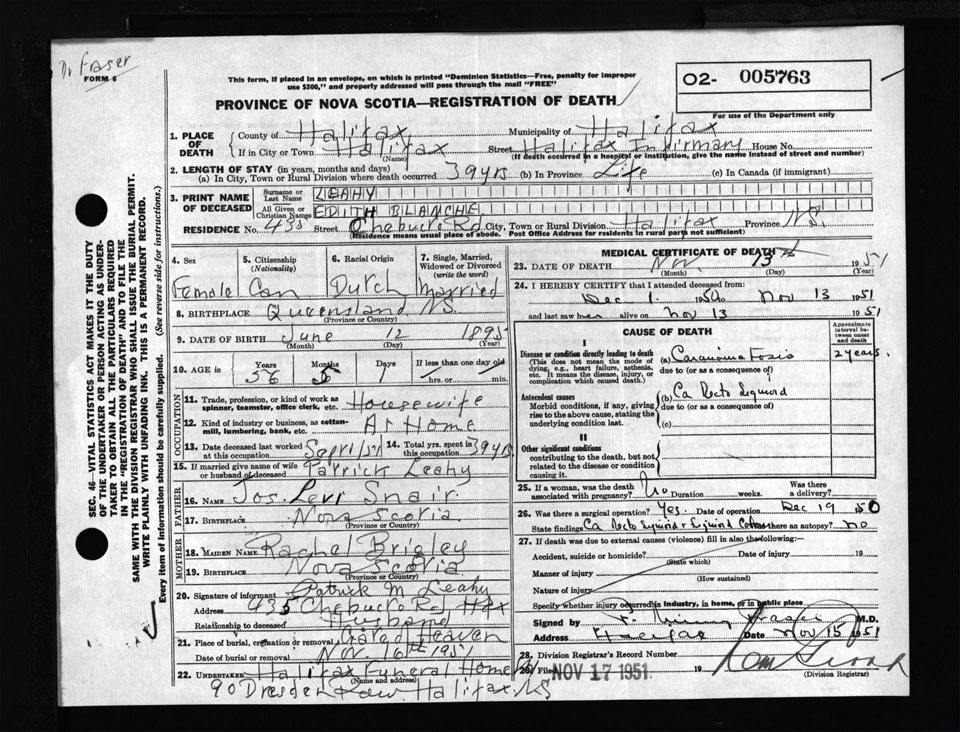 Dr Fraser
FORM 6
This form, if placed in an envelope, on which is printed "Dominion Statistics—Free, penalty for improper
use $300," and properly addressed will pass through the mail "FREE"
PROVINCE OF NOVA SCOTIA—REGISTRATION OF DEATH
O2- 005763
For use of the Department only
SEC. 46—VITAL STATISTICS ACT MAKES IT THE DUTY
OF THE UNDERTAKER OR PERSON ACTING AS UNDER-
TAKER TO OBTAIN ALL THE PARTICULARS REQUIRED
IN THE "REGISTRATION OF DEATH" AND TO FILE THE
SAME WITH THE DIVISION REGISTRAR WHO SHALL ISSUE THE BURIAL PERMIT.
WRITE PLAINLY WITH UNFADING INK. THIS IS A PERMANENT RECORD.
Every item of information should be carefully supplied. (See reverse side for instructions.)
1. PLACE OF DEATH County of Halifax Municipality of Halifax
If in City or Town Halifax Street Halifax Infirmary House No.
(Name) (If death occurred in a hospital or institution, give the name instead of street and number)
2. LENGTH OF STAY (in years, months and days)
(a) In City, Town or Rural Division where death occurred 39 yrs (b) In Province Life (c) In Canada (if immigrant)
3. PRINT NAME OF DECEASED Surname or Last Name LEAHY
All Given or Christian Names EDITH BLANCHE
RESIDENCE No. 435 Street Chebucto Rd City, Town or Rural Division Halifax Province N.S.
(Residence means usual place of abode. Post Office Address for residents in rural parts not sufficient)
4. Sex 5. Citizenship (Nationality) 6. Racial Origin 7. Single, Married, Widowed or Divorced (write the word)
Female Can Dutch Married
8. BIRTHPLACE Queensland N.S.
(Province or Country)
9. DATE OF BIRTH June 12 1895
(Month) (Day) (Year)
10. AGE in Years Months Days If less than one day old
56 5 1 hrs. or min.
OCCUPATION
11. Trade, profession, or kind of work as spinner, teamster, office clerk, etc. Housewife
12. Kind of industry or business, as cotton-mill, lumbering, bank, etc. At Home
13. Date deceased last worked at this occupation Sept/51 14. Total yrs. spent in this occupation 39 yrs
15. If married give name of wife or husband of deceased Patrick Leahy
FATHER
16. Name Jos. Levi Snair
17. Birthplace Nova Scotia
(Province or Country)
MOTHER
18. MAIDEN NAME Rachel Brigley
19. BIRTHPLACE Nova Scotia
(Province or Country)
20. Signature of informant Patrick M Leahy
Address 435 Chebucto Rd Hfx
Relationship to deceased Husband
21. Place of burial, cremation or removal Gates Heaven
Date of burial or removal Nov. 16th 1951
22. UNDERTAKER Halifax Funeral Home
(Name and address)
90 Dresden Row Halifax NS
MEDICAL CERTIFICATE OF DEATH
23. DATE OF DEATH Nov. 13th 1951
(Month) (Day) (Year)
24. I HEREBY CERTIFY that I attended deceased from:
Dec 1. 1950 to Nov 13 1951
and last saw her alive on Nov 13 1951
CAUSE OF DEATH
Approximate interval between onset and death
I
Disease or condition directly leading to death (a) Carcinoma Tosis 2 years.
(This does not mean the mode of dying, e.g., heart failure, asthenia, etc. It means the disease, injury, or complication which caused death.)
due to (or as a consequence of)
Antecedent causes (b) Ca Recto Sigmoid
Morbid conditions, if any, giving rise to the above cause, stating the underlying condition last.
due to (or as a consequence of)
(c)
II
Other significant conditions
contributing to the death, but not related to the disease or condition causing it.
25. If a woman, was the death associated with pregnancy? No Duration weeks. Was there a delivery?
26. Was there a surgical operation? Yes. Date of operation Dec 19 1950
State findings Ca Recto Sigmoid + Sigmoid Was there an autopsy? no
27. If death was due to external causes (violence) fill in also the following:—
Accident, suicide or homicide? Date of injury 19
(State which)
Manner of injury
(How sustained)
Nature of injury
Specify whether injury occurred in industry, in home, or in public place
Signed by M.D.
Address Halifax Date Nov 15 1951
28. Division Registrar's Record Number
29. Filed NOV 17 1951 19
(Division Registrar)